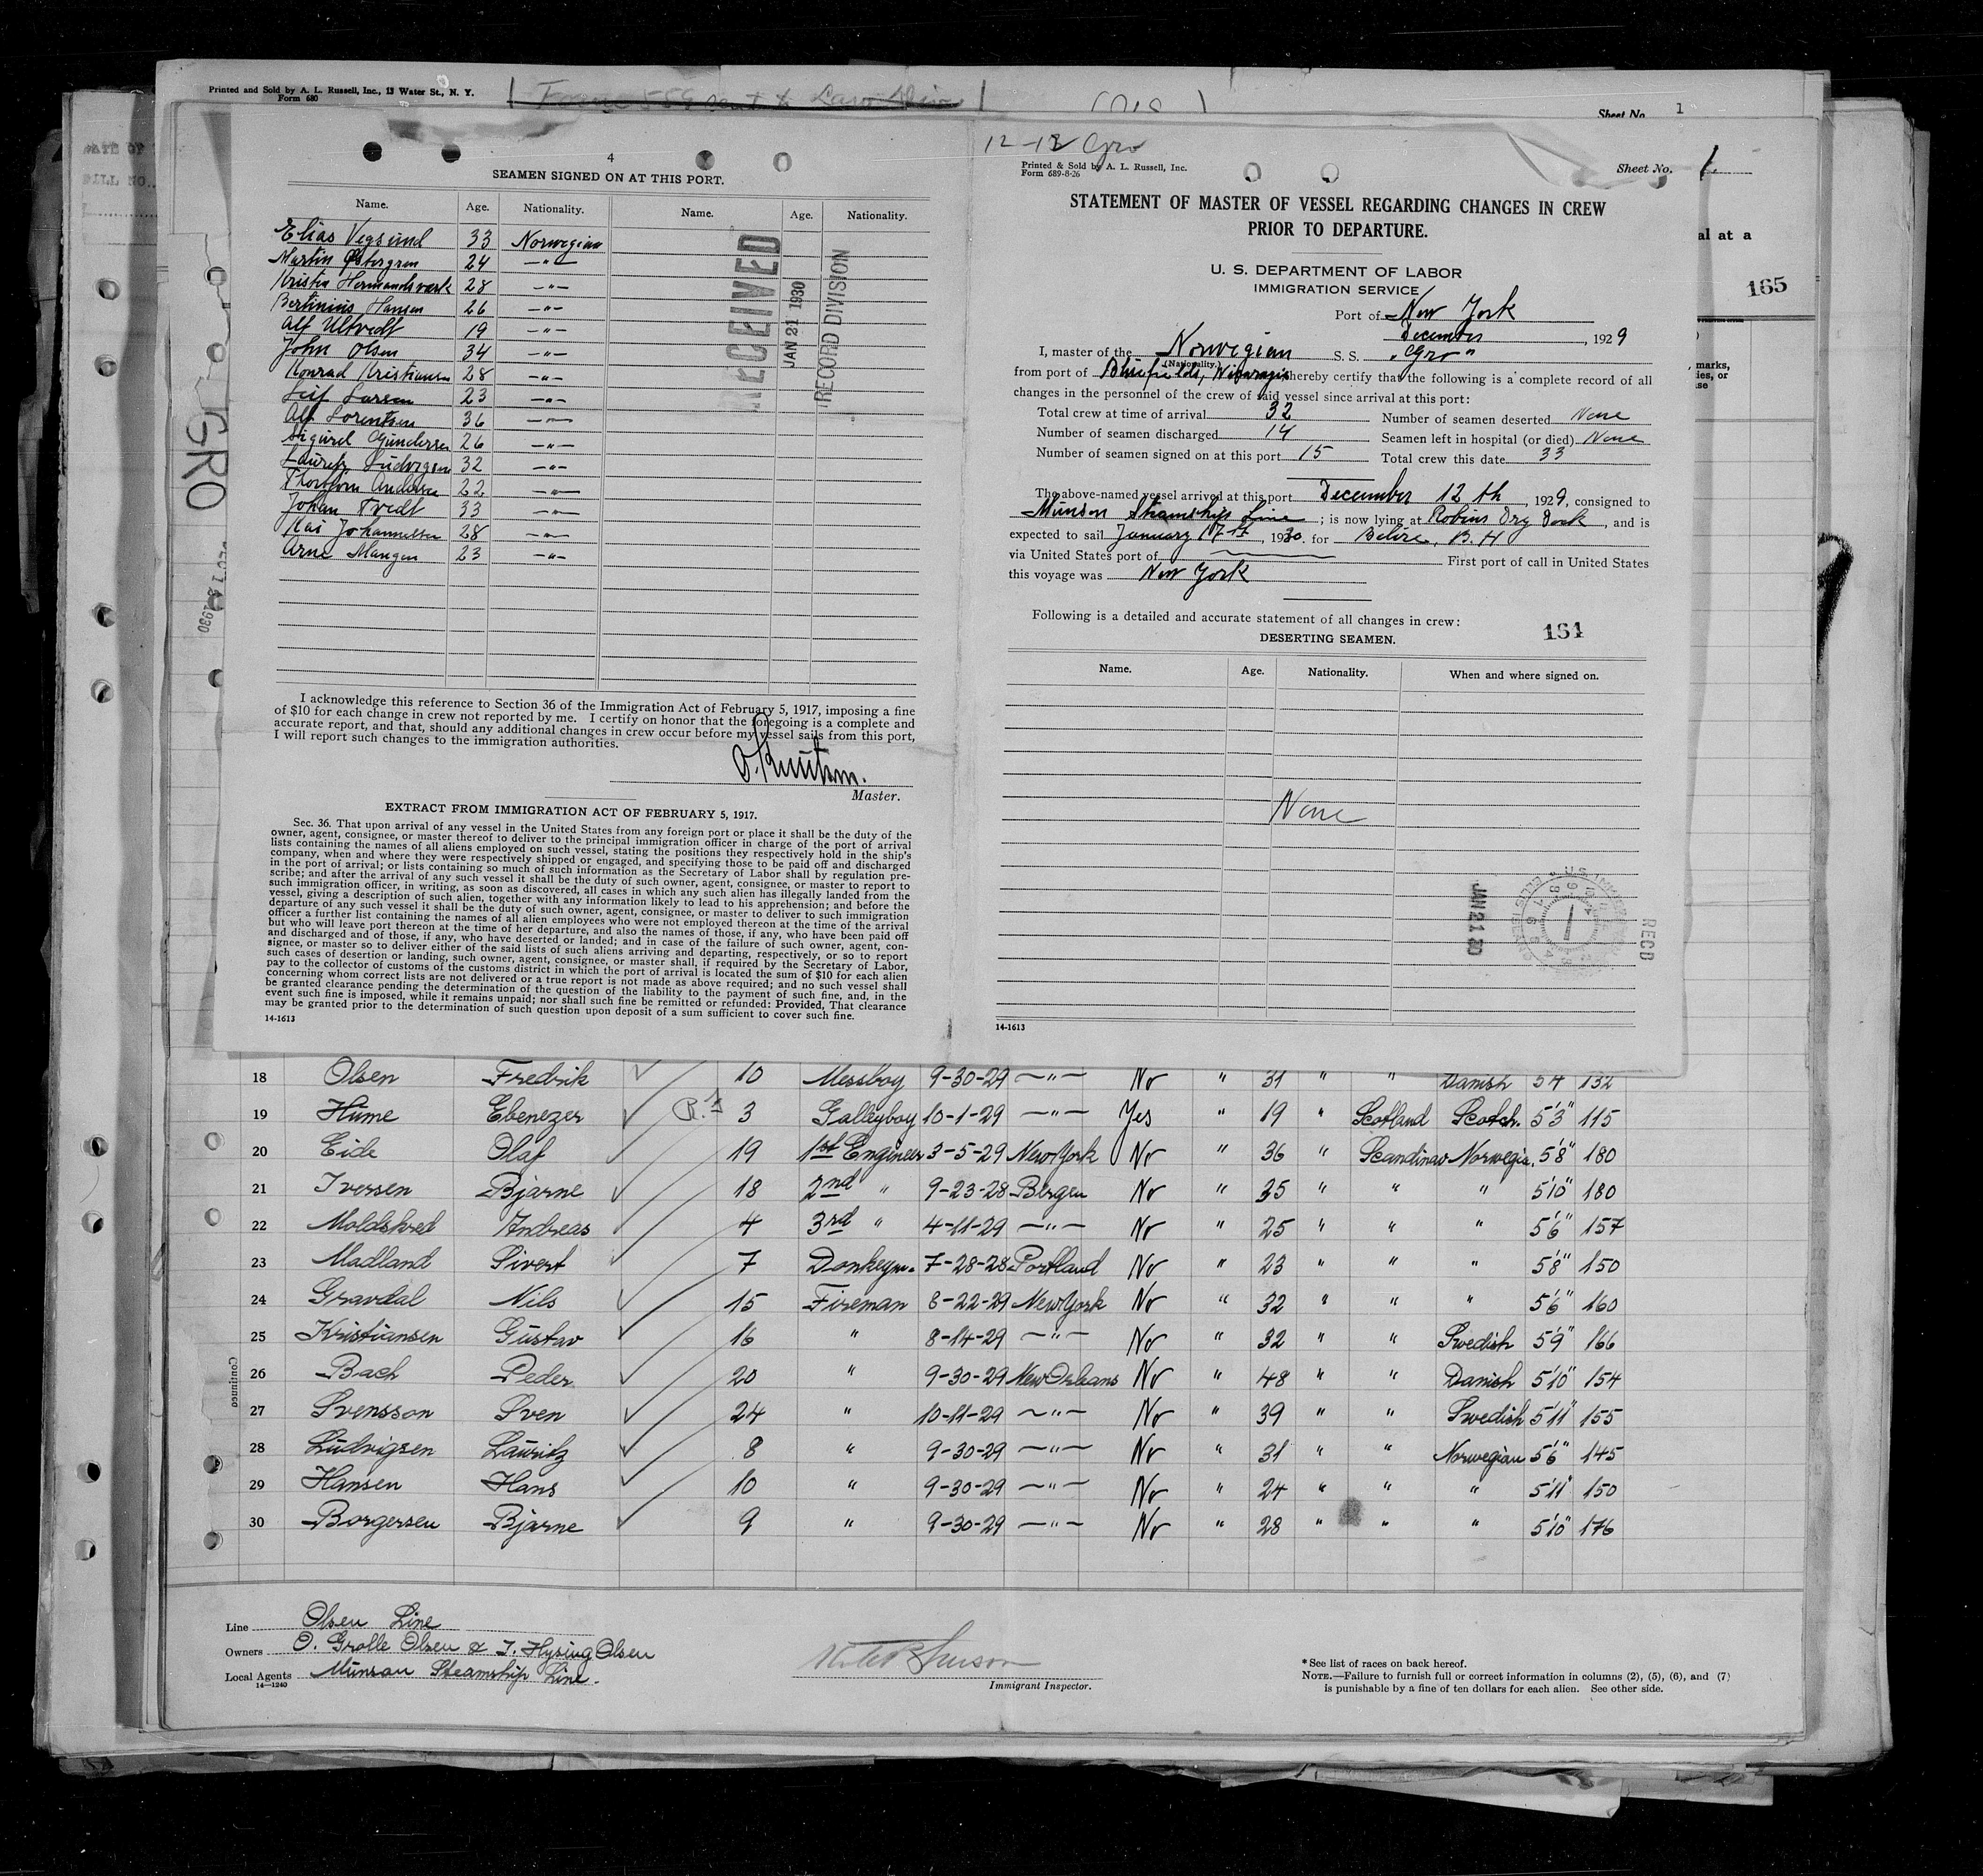 Printed and Sold by A. L. Russell, Inc., 13 Water St., N. Y.
Form 680
Sheet No. 1
al at a
165
marks,
ies, or
se
GRO
4
SEAMEN SIGNED ON AT THIS PORT.
Name. Age. Nationality. Name. Age. Nationality.
Elias Vegsund 33 Norwegian
Martin Østergren 24 —"—
Kristen Hermandsvark 28 —"—
Bertinius Hansen 26 —"—
Alf Ultvedt 19 —"—
John Olsen 34 —"—
Konrad Kristiansen 28 —"—
Leif Larsen 23 —"—
Alf Lorentsen 36 —"—
Sigurd Gundersen 26 —"—
Lauritz Ludvigsen 32 —"—
Thorbjörn Andersen 22 —"—
Johan Tvedt 33 —"—
Kai Johannessen 28 —"—
Arne Mangen 23 —"—
RECEIVED
JAN 21 1930
RECORD DIVISION
I acknowledge this reference to Section 36 of the Immigration Act of February 5, 1917, imposing a fine
of $10 for each change in crew not reported by me. I certify on honor that the foregoing is a complete and
accurate report, and that, should any additional changes in crew occur before my vessel sails from this port,
I will report such changes to the immigration authorities.
O. Knutsen.
Master.
EXTRACT FROM IMMIGRATION ACT OF FEBRUARY 5, 1917.
Sec. 36. That upon arrival of any vessel in the United States from any foreign port or place it shall be the duty of the
owner, agent, consignee, or master thereof to deliver to the principal immigration officer in charge of the port of arrival
lists containing the names of all aliens employed on such vessel, stating the positions they respectively hold in the ship's
company, when and where they were respectively shipped or engaged, and specifying those to be paid off and discharged
in the port of arrival; or lists containing so much of such information as the Secretary of Labor shall by regulation pre-
scribe; and after the arrival of any such vessel it shall be the duty of such owner, agent, consignee, or master to report to
such immigration officer, in writing, as soon as discovered, all cases in which any such alien has illegally landed from the
vessel, giving a description of such alien, together with any information likely to lead to his apprehension; and before the
departure of any such vessel it shall be the duty of such owner, agent, consignee, or master to deliver to such immigration
officer a further list containing the names of all alien employees who were not employed thereon at the time of the arrival
but who will leave port thereon at the time of her departure, and also the names of those, if any, who have been paid off
and discharged and of those, if any, who have deserted or landed; and in case of the failure of such owner, agent, con-
signee, or master so to deliver either of the said lists of such aliens arriving and departing, respectively, or so to report
such cases of desertion or landing, such owner, agent, consignee, or master shall, if required by the Secretary of Labor,
pay to the collector of customs of the customs district in which the port of arrival is located the sum of $10 for each alien
concerning whom correct lists are not delivered or a true report is not made as above required; and no such vessel shall
be granted clearance pending the determination of the question of the liability to the payment of such fine, and, in the
event such fine is imposed, while it remains unpaid; nor shall such fine be remitted or refunded: Provided, That clearance
may be granted prior to the determination of such question upon deposit of a sum sufficient to cover such fine.
14-1613
12-12 Gro
Printed & Sold by A. L. Russell, Inc.
Form 689-8-26
Sheet No. 1.
STATEMENT OF MASTER OF VESSEL REGARDING CHANGES IN CREW
PRIOR TO DEPARTURE.
U. S. DEPARTMENT OF LABOR
IMMIGRATION SERVICE
Port of New York
December, 1929
I, master of the Norwegian S. S. "Gro"
(Nationality.)
from port of Bluefields, Nicaragua hereby certify that the following is a complete record of all
changes in the personnel of the crew of said vessel since arrival at this port:
Total crew at time of arrival 32 Number of seamen deserted None
Number of seamen discharged 14 Seamen left in hospital (or died) None
Number of seamen signed on at this port 15 Total crew this date 33
The above-named vessel arrived at this port December 12th, 1929, consigned to
Munson Steamship Line; is now lying at Robins Dry Dock, and is
expected to sail January 17th, 1930. for Belize, B. H
via United States port of First port of call in United States
this voyage was New York
Following is a detailed and accurate statement of all changes in crew:
DESERTING SEAMEN. 164
Name. Age. Nationality. When and where signed on.
None
JAN 21 30
RECD
14-1613
18 Olsen Fredrik 10 Messboy 9-30-29 —"— No " 31 " " Danish 5'4 132
19 Hume Ebenezer 3 Galleyboy 10-1-29 —"— Yes " 19 " Scotland Scotch. 5'3" 115
20 Eide Olaf 19 1st Engineer 3-5-29 New York No " 36 " Scandinav Norwegia. 5'8" 180
21 Iversen Bjarne 18 2nd " 9-23-28 Bergen No " 35 " " " 5'10" 180
22 Moldskred Andreas 4 3rd " 4-11-29 —"— No " 25 " " " 5'6" 157
23 Madland Sivert 7 Donkeym. 7-28-28 Portland No " 23 " " " 5'8" 150
24 Gravdal Nils 15 Fireman 8-22-29 New York No " 32 " " " 5'6" 160
25 Kristiansen Gustav 16 " 8-14-29 —"— No " 32 " " Swedish 5'9" 166
26 Bach Peder 20 " 9-30-29 New Orleans No " 48 " " Danish 5'10" 154
27 Svensson Sven 24 " 10-11-29 —"— No " 39 " " Swedish 5'11" 155
28 Ludvigsen Lauritz 8 " 9-30-29 —"— No " 31 " " Norwegian 5'6" 145
29 Hansen Hans 10 " 9-30-29 —"— No " 24 " " " 5'11" 150
30 Borgersen Bjarne 9 " 9-30-29 —"— No " 28 " " " 5'10" 176
Line Olsen Line
Owners O. Grolle Olsen & I. Hysing Olsen
Local Agents Munson Steamship Line.
14—1240
Immigrant Inspector.
* See list of races on back hereof.
NOTE.—Failure to furnish full or correct information in columns (2), (5), (6), and (7)
is punishable by a fine of ten dollars for each alien. See other side.